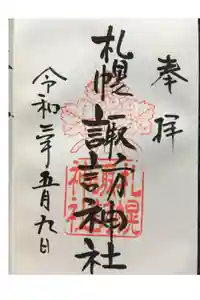 奉拝
札幌諏訪神社
令和二年五月九日
札幌諏訪神社